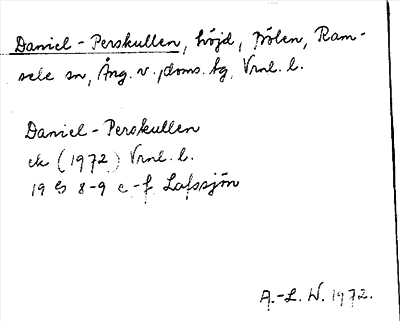 Daniel-Perskullen, höjd, Fölen, Ram-
sele sn, Ång. v. doms. tg, Vrnl. l.
Daniel-Perskullen
ek (1972) Vrnl. l.
19 G 8-9 e-f Lafssjön
A.-L. W. 1972.